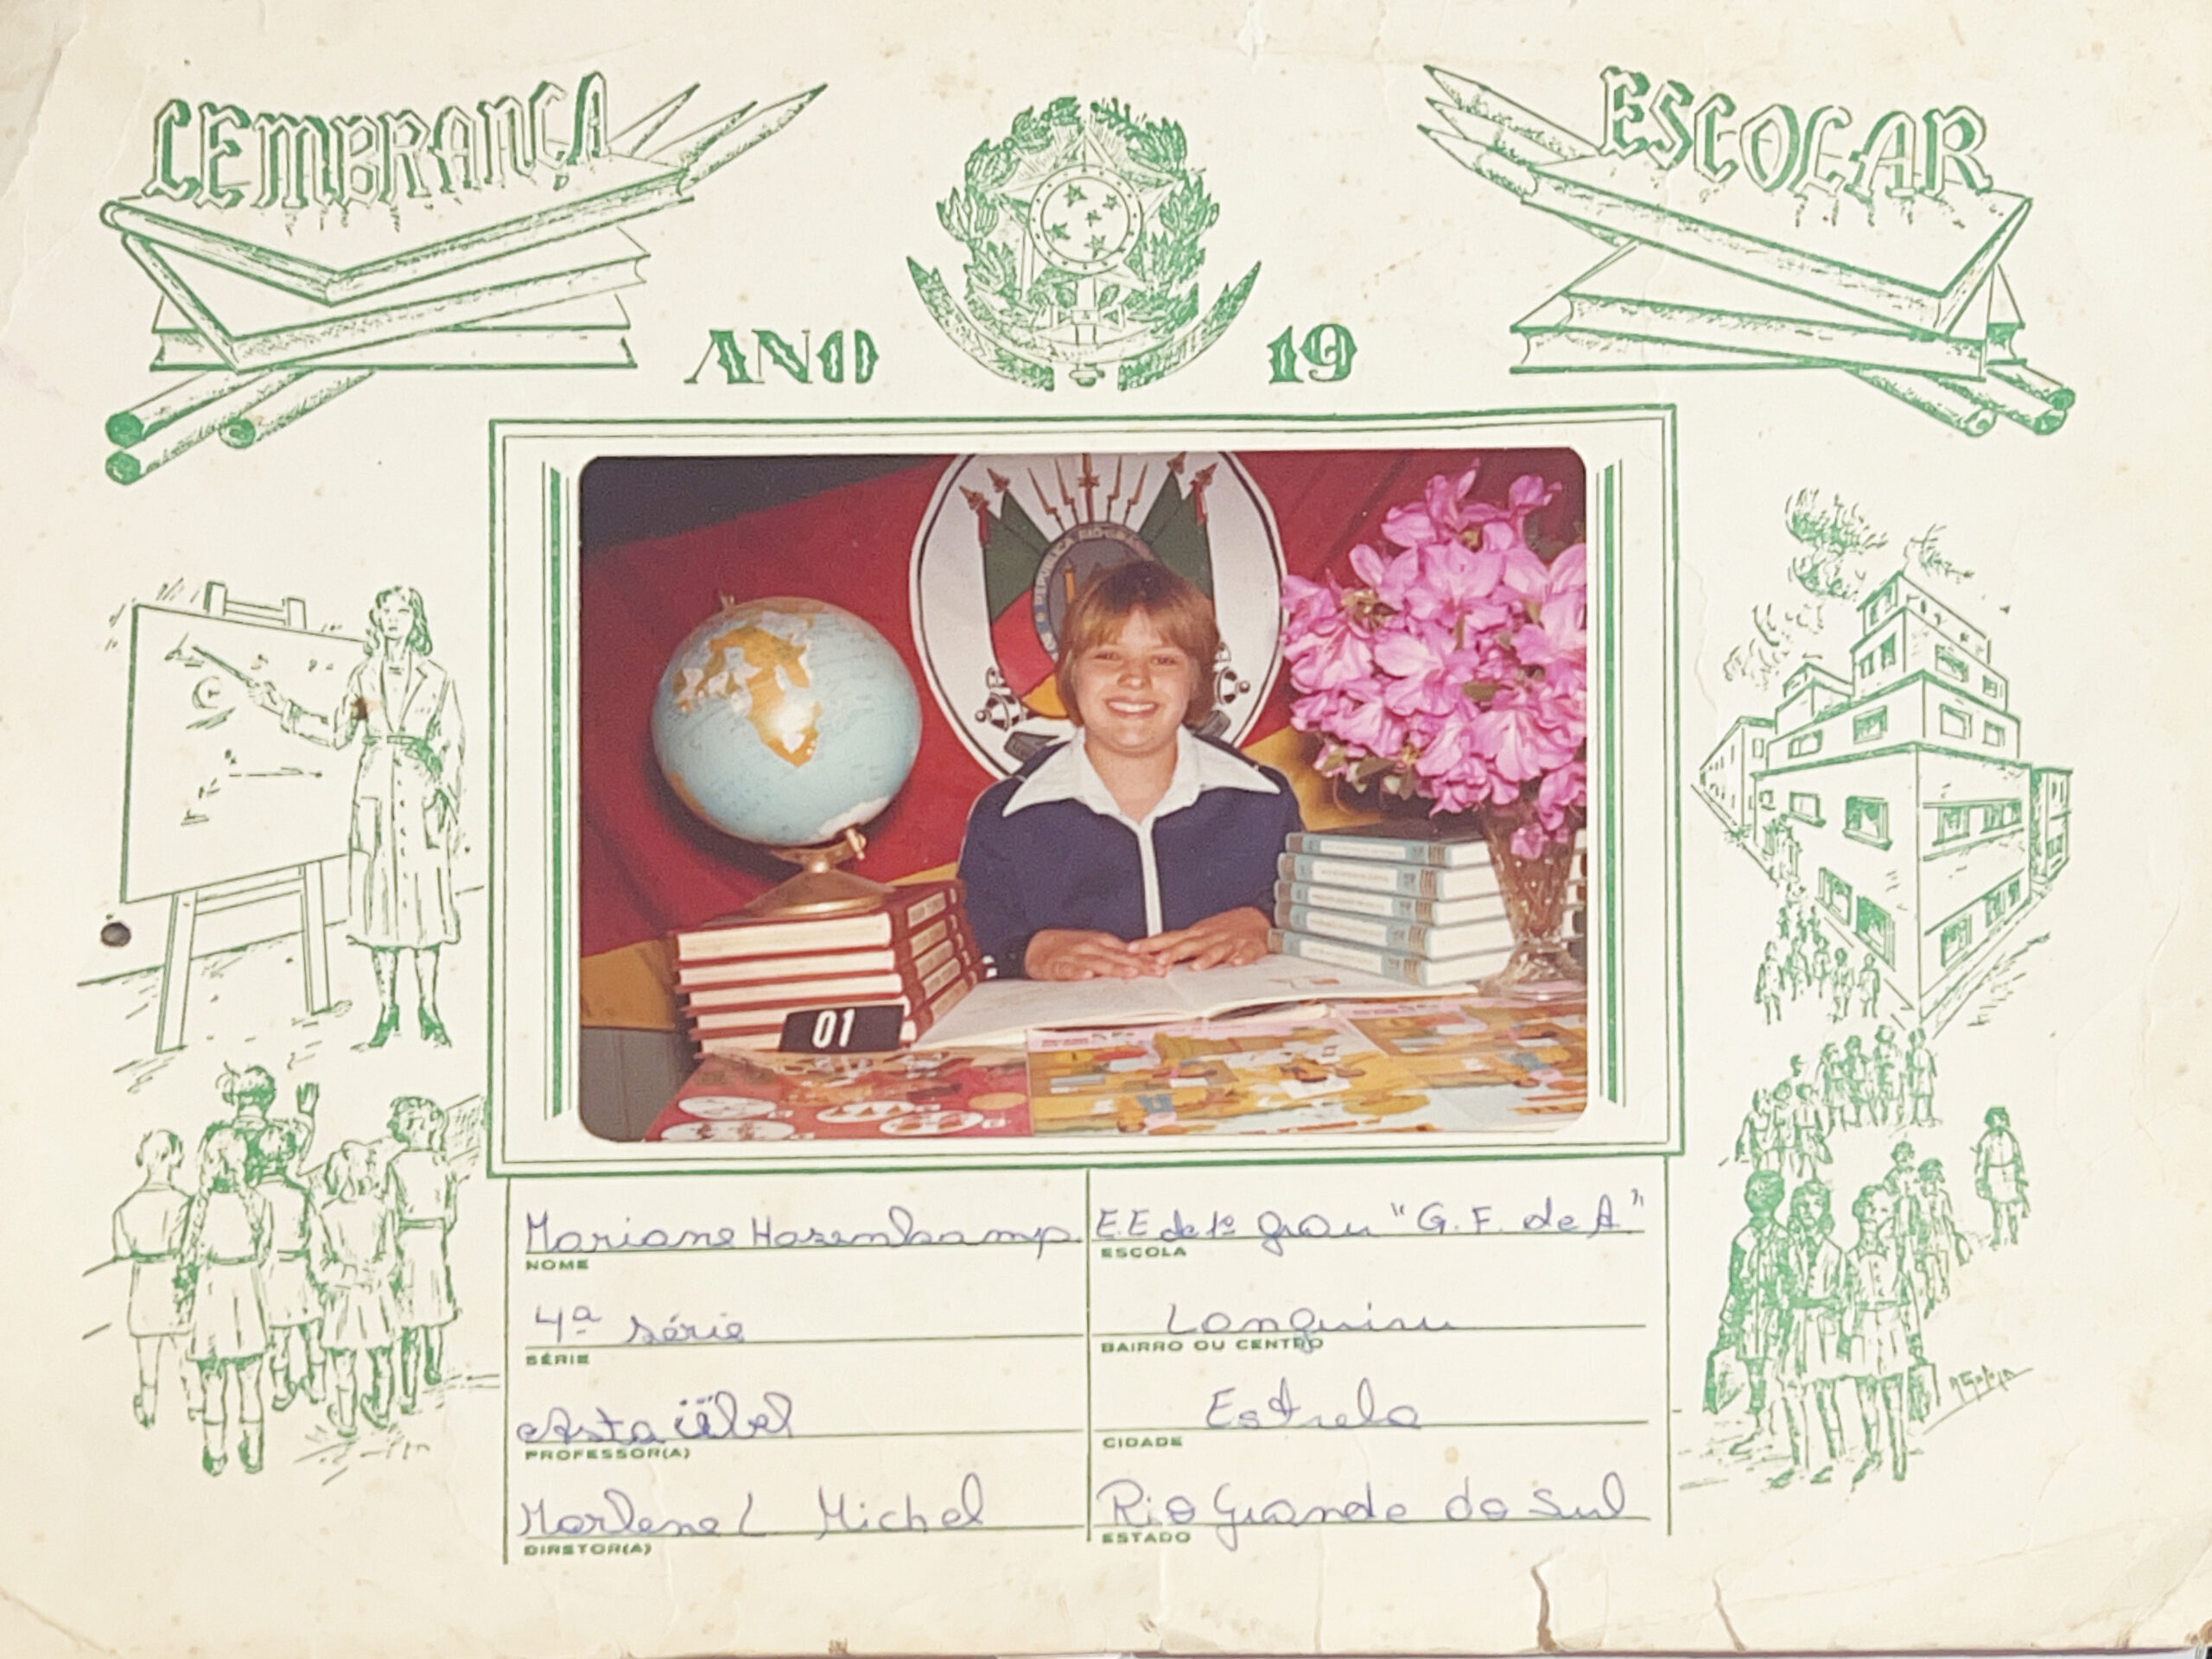 LEMBRANÇA
ESCOLAR
ANO 19
REPÚBLICA RIO-GRANDENSE
01
Mariane Hasenkamp
NOME
E.E de 1º grau "G. F. de A."
ESCOLA
4ª série
SÉRIE
BAIRRO OU CENTRO
Asta
PROFESSOR(A)
Estrela
CIDADE
Marlene L Michel
DIRETOR(A)
Rio Grande do Sul
ESTADO